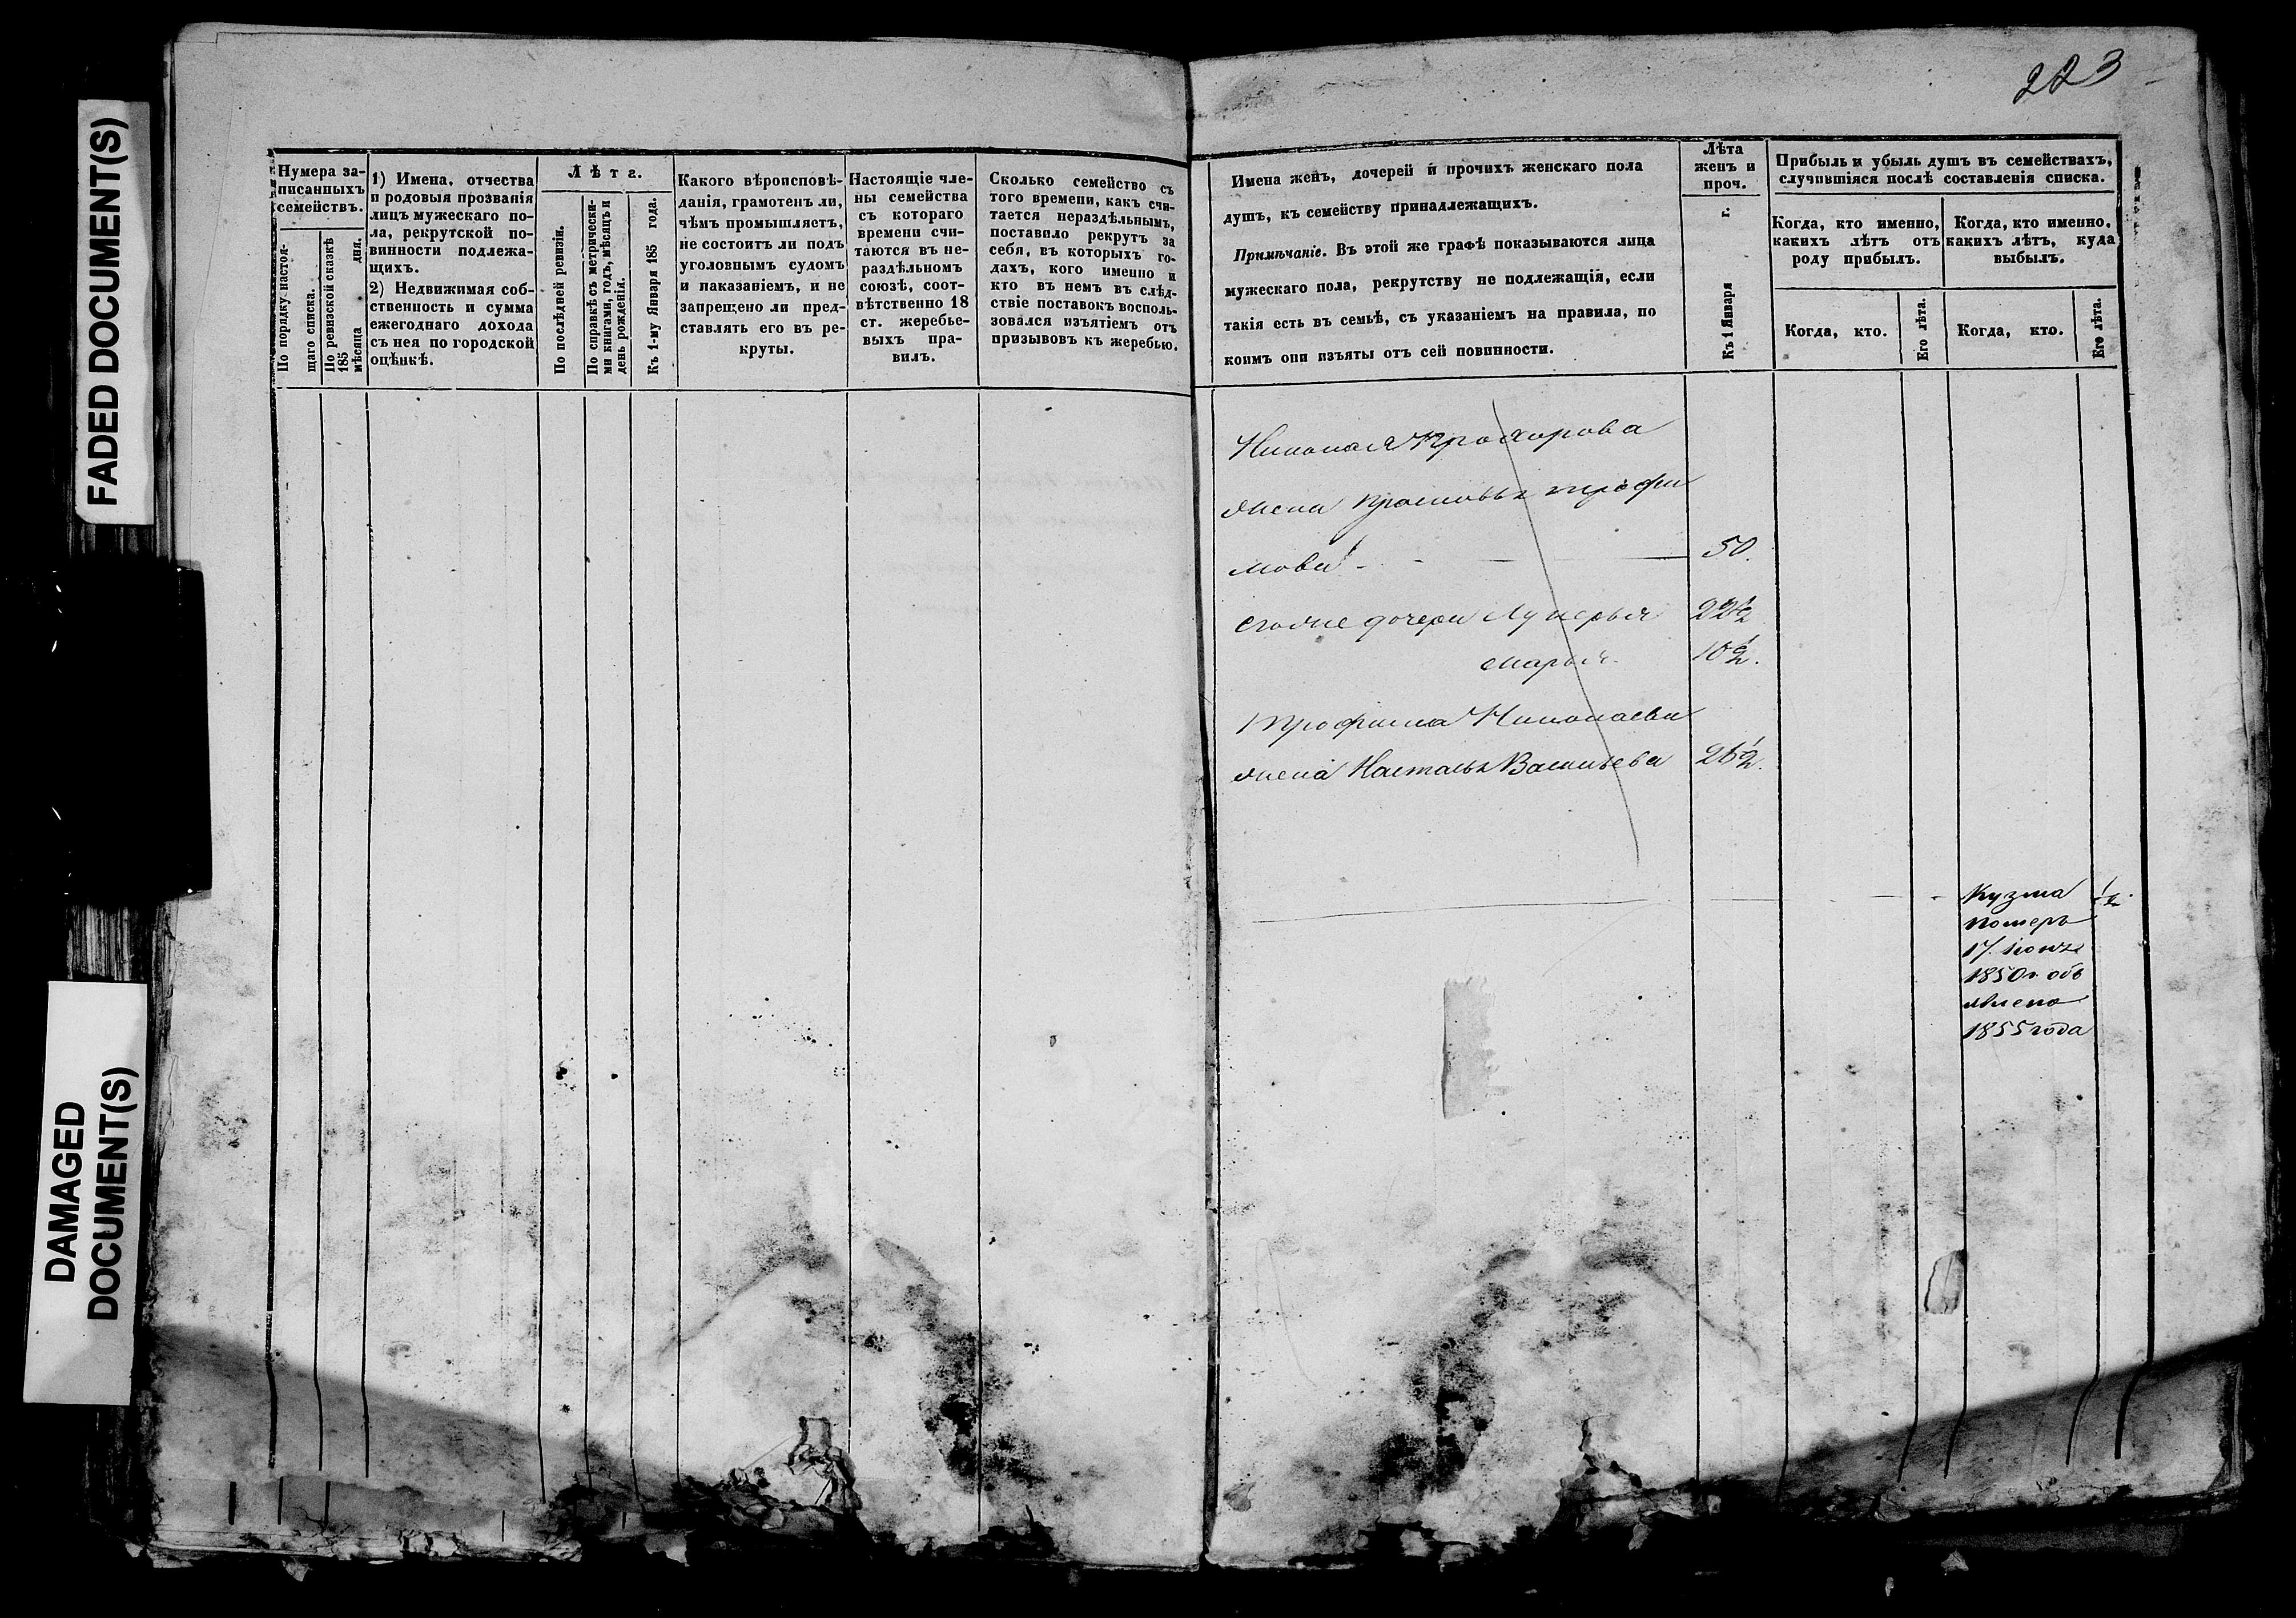 FADED DOCUMENT(S)
DAMAGED
DOCUMENT(S)
223
Нумера за-
писанныхъ
семействъ.
По порядку настоя-
щаго списка.
По ревизской сказкѣ
185
мѣсяца дня.
1) Имена, отчества
и родовыя прозванія
лицъ мужескаго по-
ла, рекрутской по-
винности подлежа-
щихъ.
2) Недвижимая соб-
ственность и сумма
ежегоднаго дохода
съ нея по городской
оцѣнкѣ.
Лѣта.
По послѣдней ревизіи.
По справкѣ съ метрически-
ми книгами, годъ, мѣсяцъ и
день рожденія.
Къ 1-му Января 185 года.
Какого вѣроисповѣ-
данія, грамотенъ ли,
чѣмъ промышляетъ,
не состоитъ ли подъ
уголовнымъ судомъ
и наказаніемъ, и не
запрещено ли пред-
ставлять его въ ре-
круты.
Настоящіе чле-
ны семейства
съ котораго
времени счи-
таются въ не-
раздѣльномъ
союзѣ, соот-
вѣтственно 18
ст. жеребье-
выхъ пра-
вилъ.
Сколько семейство съ
того времени, какъ счи-
тается нераздѣльнымъ,
поставило рекрутъ за
себя, въ которыхъ го-
дахъ, кого именно и
кто въ немъ въ слѣд-
ствіе поставокъ восполь-
зовался изъятіемъ отъ
призывовъ къ жеребью.
Имена женъ, дочерей и прочихъ женскаго пола
душъ, къ семейству принадлежащихъ.
Примѣчаніе. Въ этой же графѣ показываются лица
мужескаго пола, рекрутству не подлежащія, если
такія есть въ семьѣ, съ указаніемъ на правила, по
коимъ они изъяты отъ сей повинности.
Лѣта
женъ и
проч.
Къ 1 Января г.
Прибыль и убыль душъ въ семействахъ,
случившіяся послѣ составленія списка.
Когда, кто именно,
какихъ лѣтъ отъ
роду прибылъ.
Когда, кто именно,
какихъ лѣтъ, куда
выбылъ.
Когда, кто.
Его лѣта.
Когда, кто.
Его лѣта.
Николая Прохорова
жена Прасковья трофи
мова 50.
егоже дочери Лукерья 22½
Марья. 10½.
Трофима Николаева
жена Настасья Васильева 26½.
Кузма ½
померъ
17. іюня
1850 г. объ
явлено
1855 года